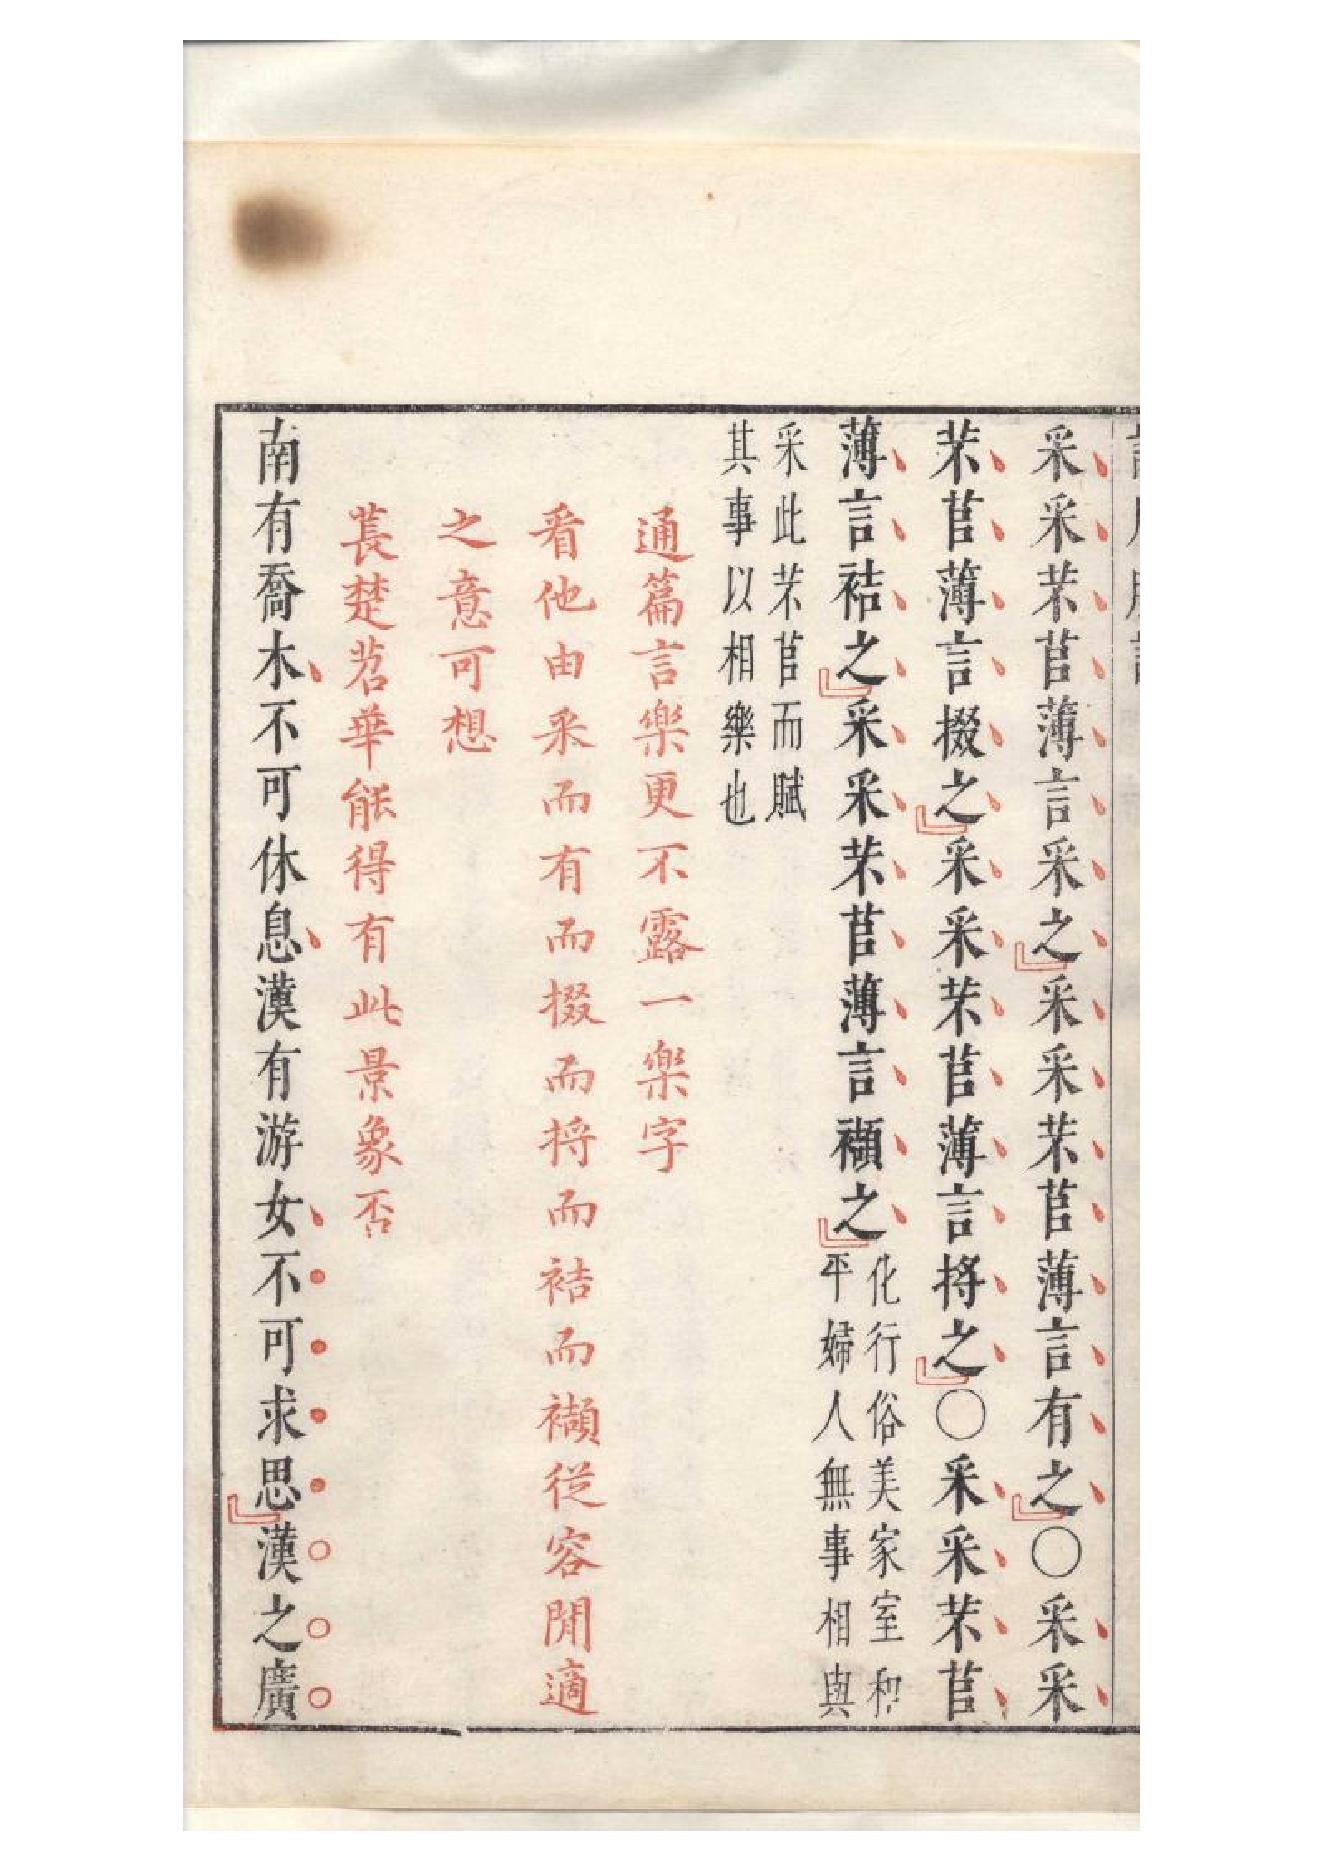 采采芣苢薄言采之采采芣苢薄言有之〇采采
芣苢薄言掇之采采芣苢薄言捋之〇采采芣苢
薄言袺之采采芣苢薄言襭之
化行俗美家室和
平婦人無事相與
采此芣苢而賦
其事以相樂也
通篇言樂更不露一樂字
看他由采而有而掇而捋而袺而襭從容閒適
之意可想
萇楚苕華能得有此景象否
南有喬木不可休息漢有游女不可求思漢之廣